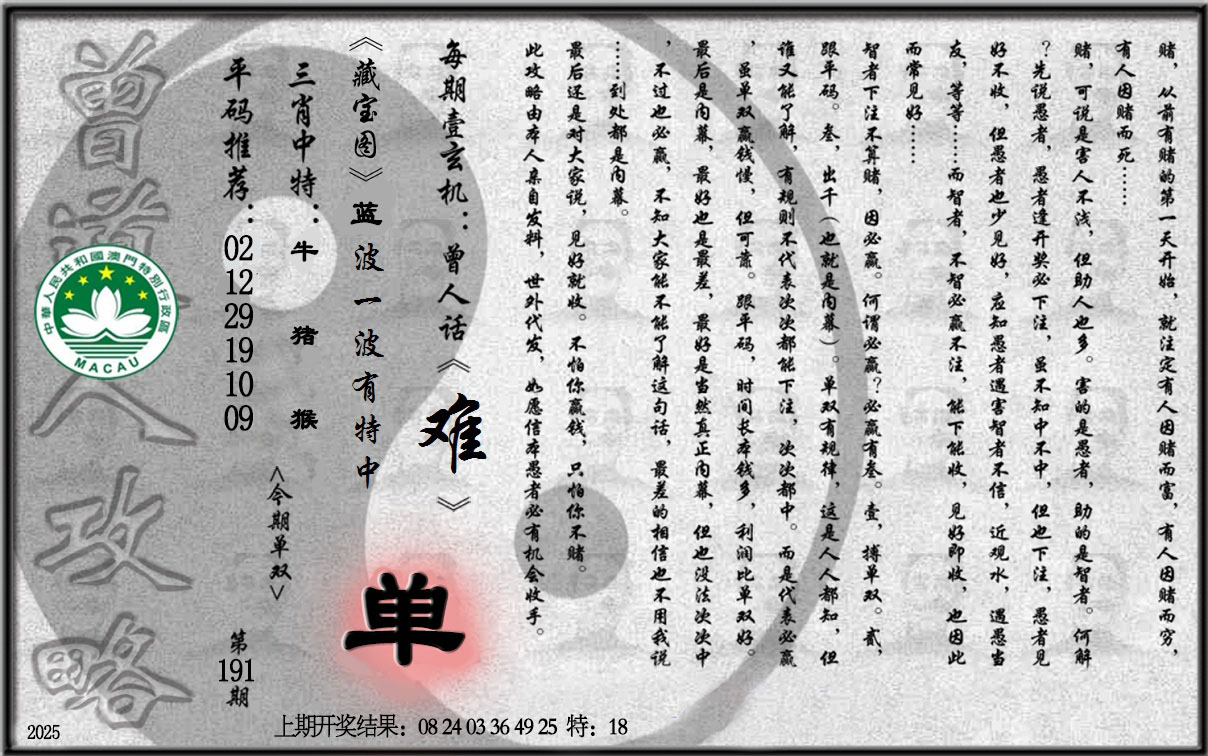 赌，从前有赌的第一天开始，就注定有人因赌而富，有人因赌而穷，
有人因赌而死……
赌，可说是害人不浅，但助人也多。害的是愚者，助的是智者。何解
？先说愚者，愚者逢开奖必下注，虽不知中不中，但也下注，愚者见
好不收，但愚者也少见好，应知愚者遇害智者不信，近观水，遇愚当
友，等等……而智者，不智必赢不注，能下能收，见好即收，也因此
而常见好……
智者下注不算赌，因必赢。何谓必赢？必赢有叁。壹，搏单双。贰，
跟平码。叁，出千（也就是内幕）。单双有规律，这是人人都知，但
谁又能了解，有规则不代表次次都能下注，次次都中。而是代表必赢
，虽单双赢钱慢，但可靠。跟平码，时间长本钱多，利润比单双好。
最后是内幕，最好也是最差，最好是当然真正内幕，但也没法次次中
，不过也必赢，不知大家能不能了解这句话，最差的相信也不用我说
……到处都是内幕。
最后还是对大家说，见好就收。不怕你赢钱，只怕你不赌。
此攻略由本人亲自发料，世外代发，如愿信本愚者必有机会收手。
每期壹玄机：曾人话《难》
《藏宝图》蓝波一波有特中
单
三肖中特：牛 猪 猴
<今期单双>
平码推荐：02 12 29 19 10 09
第191期
曾道人攻略
中華人民共和國澳門特別行政區
MACAU
2025
上期开奖结果：08 24 03 36 49 25 特：18